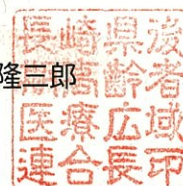 隆三郎
長崎県後
期高齢者
医療広域
連合長印